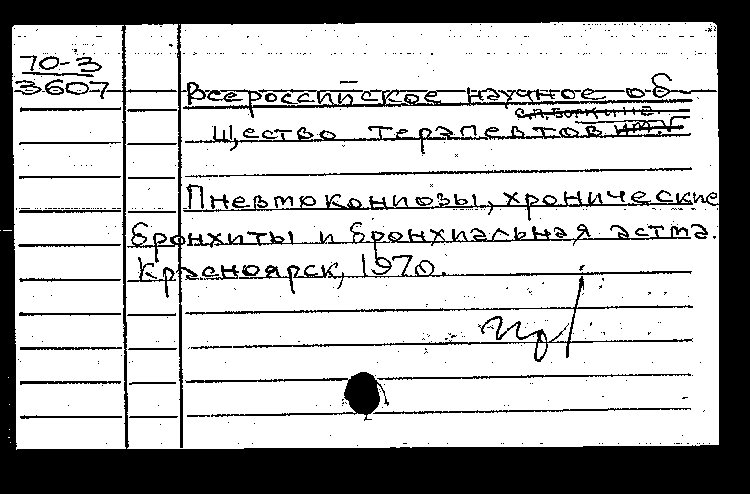 70-3
3607
Всероссийское научное об-
щество терапевтов
Пневмокониозы, хронические
бронхиты и бронхиальная астма.
Красноярск, 1970.